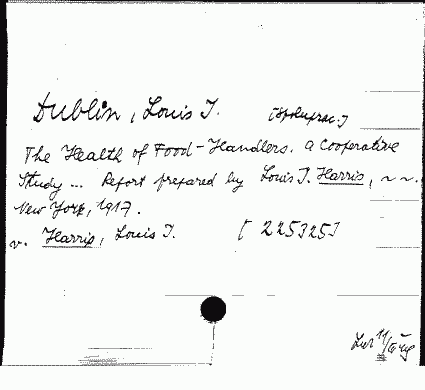 Dublin, Louis I. [Spoluprac.]
The Health of Food-Handlers. a Cooperative
Study... Report prepared by Louis I. Harris, ~ ~.
New York, 1917.
v. Harris, Louis I. [225325]